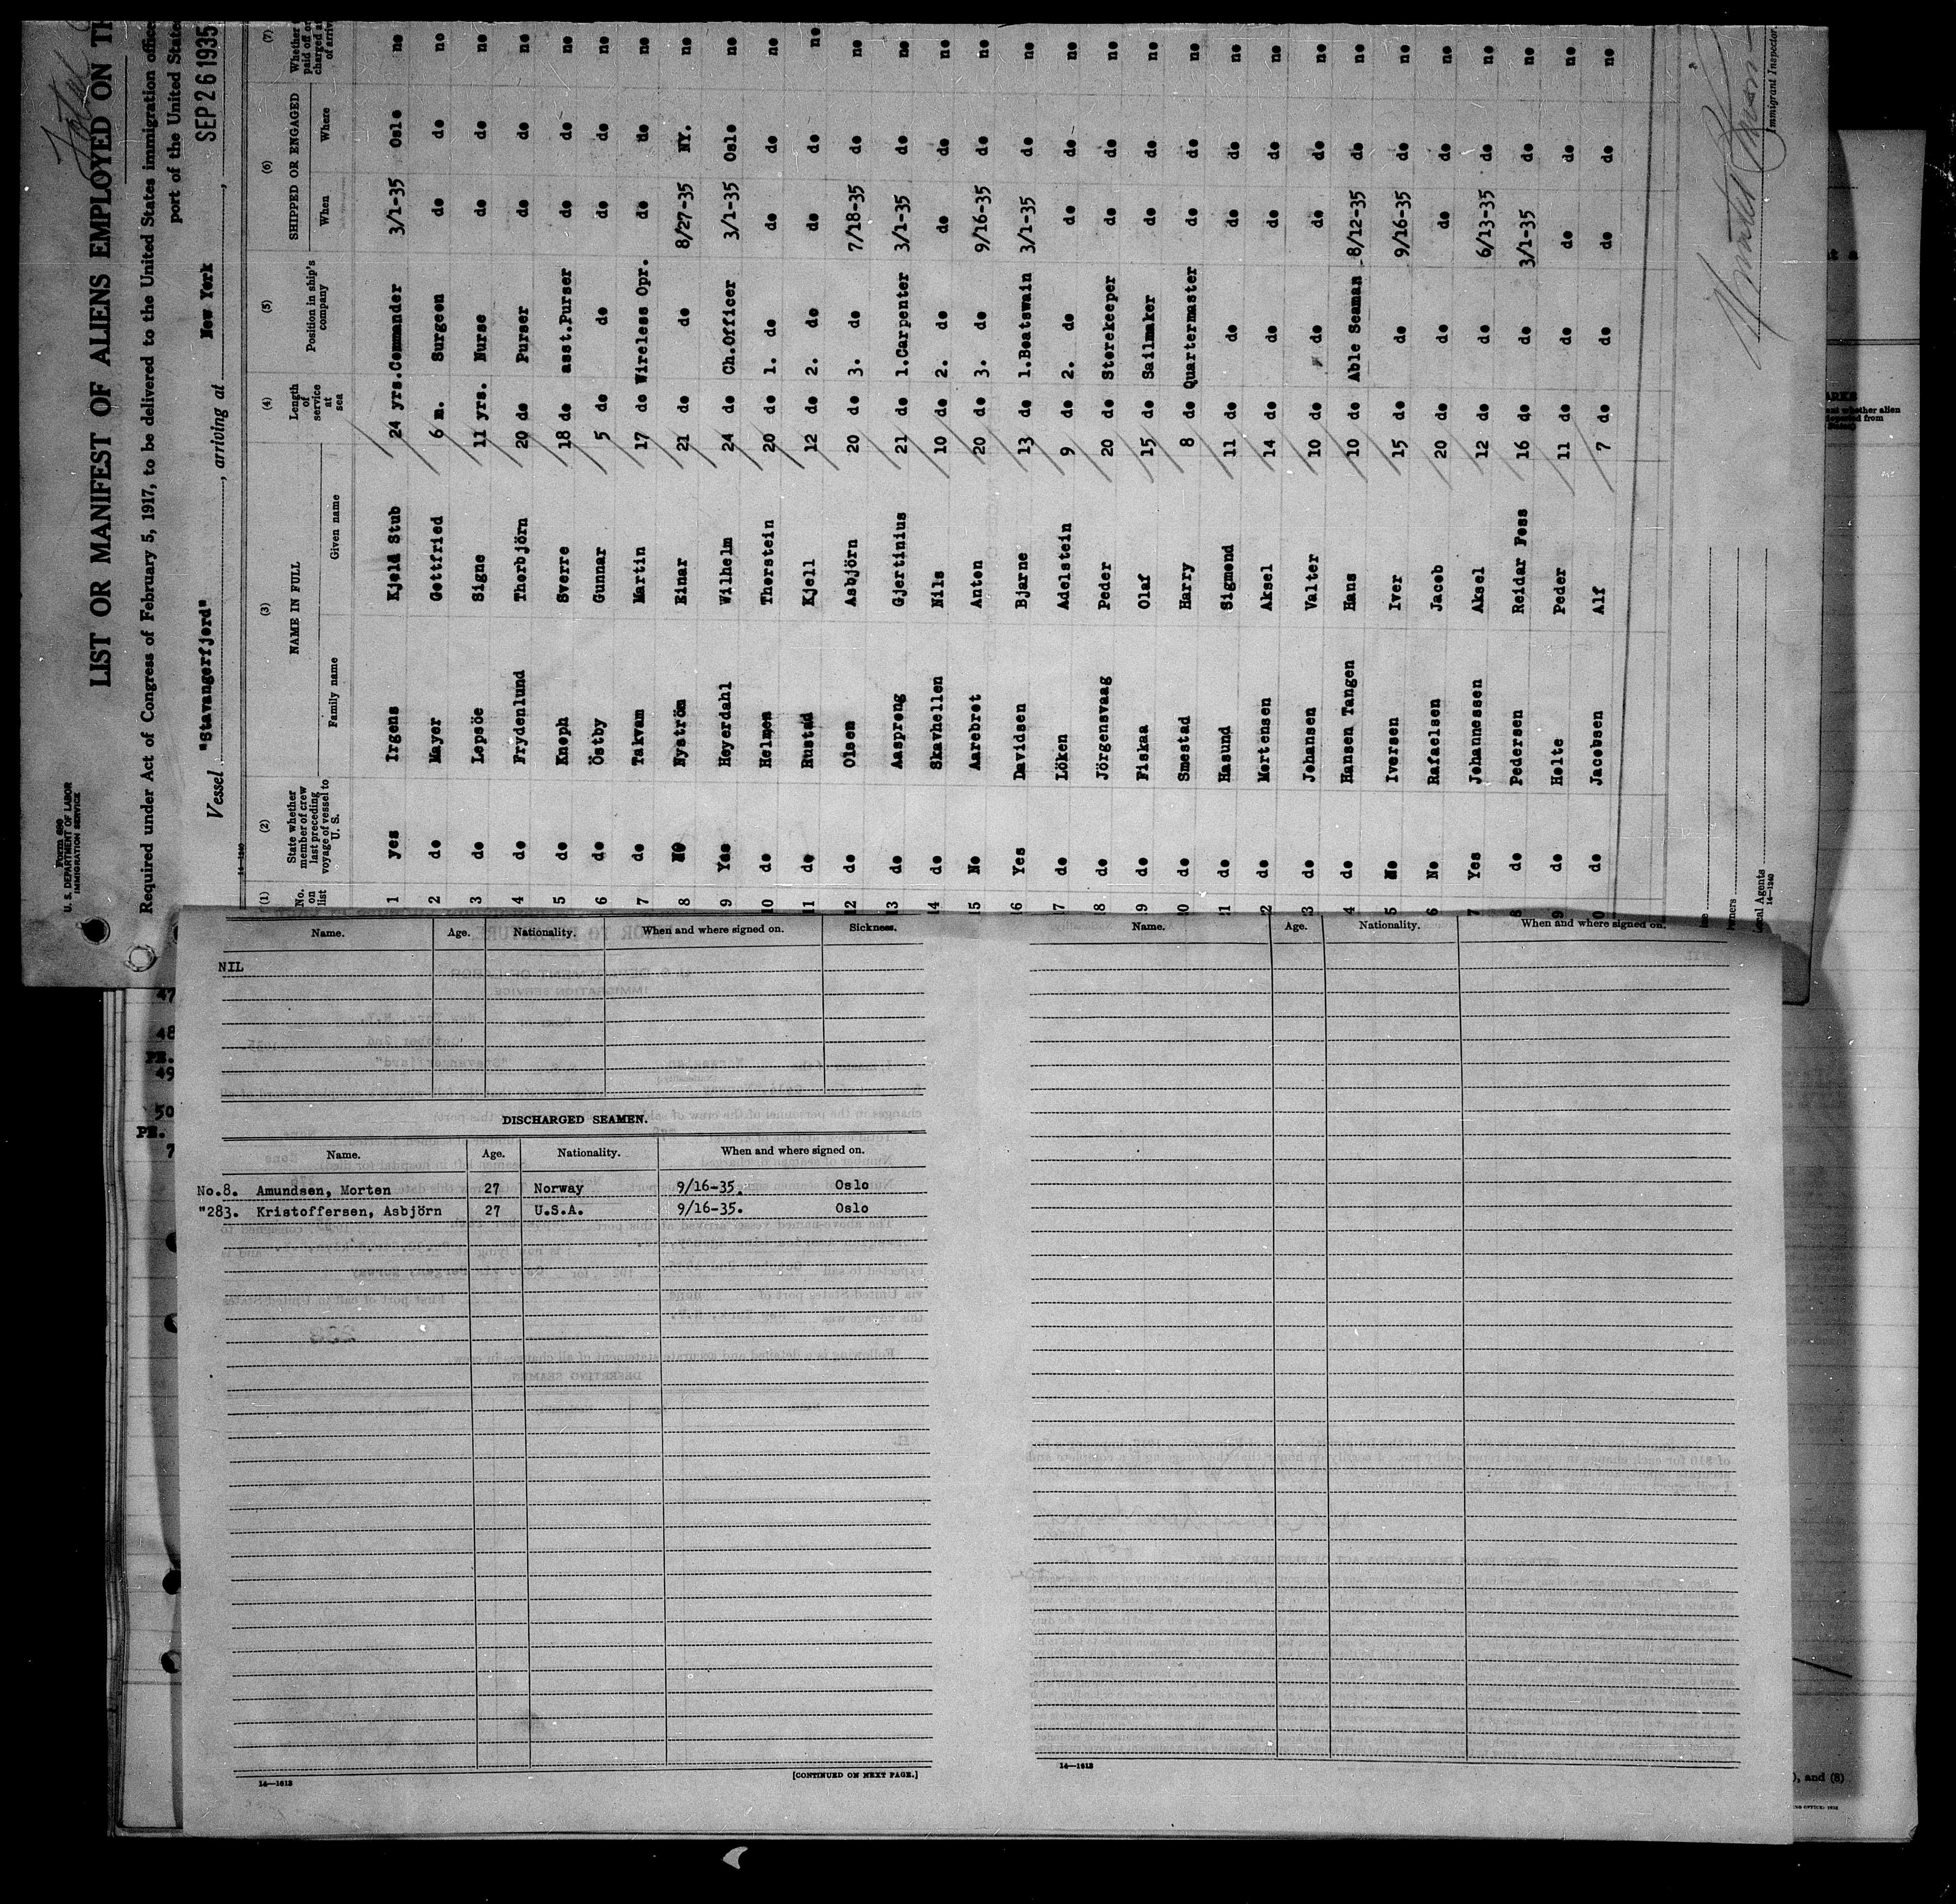 Form 689
U. S. DEPARTMENT OF LABOR
IMMIGRATION SERVICE
Total
LIST OR MANIFEST OF ALIENS EMPLOYED ON
Required under Act of Congress of February 5, 1917, to be delivered to the United States immigration
port of the United
Vessel "Stavangerfjord", arriving at New York, SEP 26 1935
14-1240
(1) (2) (3) (4) (5) (6) (7)
No. on list
State whether member of crew last preceding voyage of vessel to U. S.
NAME IN FULL
Family name Given name
Length of service at sea
Position in ship's company
SHIPPED OR ENGAGED
When Where
Whether paid off
1 yes Irgens Kjeld Stub 24 yrs. Commander 3/1-35 Oslo no
2 do Mayer Gottfried 6 m. Surgeon do do no
3 do Lepsöe Signe 11 yrs. Nurse do do no
4 do Frydenlund Thorbjörn 20 do Purser do do no
5 do Knoph Sverre 18 do asst.Purser do do no
6 do Östby Gunnar 5 do do do do no
7 do Takvam Martin 17 do Wireless Opr. do do no
8 NO Nyström Einar 21 do do 8/27-35 NY. no
9 Yes Heyerdahl Wilhelm 24 do Ch.Officer 3/1-35 Oslo no
10 do Holmen Thorstein 20 do 1. do do do no
11 do Rustad Kjell 12 do 2. do do do no
12 do Olsen Asbjörn 20 do 3. do 7/18-35 do no
13 do Aaspreng Gjertinius 21 do 1.Carpenter 3/1-35 do no
14 do Skavhellen Nils 10 do 2. do do do no
15 No Aarebrot Anton 20 do 3. do 9/16-35 do no
16 Yes Davidsen Bjarne 13 do 1.Boatswain 3/1-35 do no
17 do Löken Adelstein 9 do 2. do do do no
18 do Jörgensvaag Peder 20 do Storekeeper do do no
19 do Fiskaa Olaf 15 do Sailmaker do do no
0 do Smestad Harry 8 do Quartermaster do do no
1 do Hasund Sigmond 11 do do do do no
2 do Mortensen Aksel 14 do do do do no
3 do Johansen Valter 10 do do do do no
4 do Hansen Tangen Hans 10 do Able Seaman 8/12-35 do no
5 No Iversen Iver 15 do do 9/16-35 do no
6 No Rafaelsen Jacob 20 do do do do no
7 Yes Johannessen Aksel 12 do do 6/13-35 do no
8 do Pedersen Reidar Foss 16 do do 3/1-35 do no
9 do Holte Peder 11 do do do do no
0 do Jacobsen Alf 7 do do do do no
Immigrant Inspector.
Local Agents
14-1240
Name. Age. Nationality. When and where signed on. Sickness.
NIL
DISCHARGED SEAMEN.
Name. Age. Nationality. When and where signed on.
No.8. Amundsen, Morten 27 Norway 9/16-35. Oslo
"283. Kristoffersen, Asbjörn 27 U.S.A. 9/16-35. Oslo
14—1613
[CONTINUED ON NEXT PAGE.]
Name. Age. Nationality. When and where signed on.
14—1613
47
48
PH.
49
50
PH.
7
whether alien
from
), and (8)